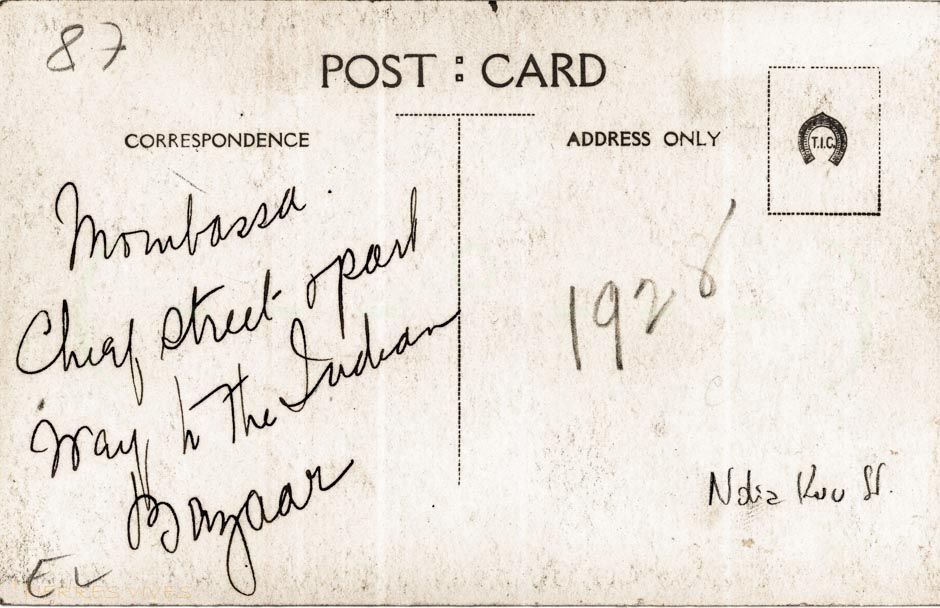 87
POST : CARD
CORRESPONDENCE
ADDRESS ONLY
T.I.C.
Mombassa.
Chief street & part
way to the Indian
Bazaar
1928
Ndia Kuu St.
EL